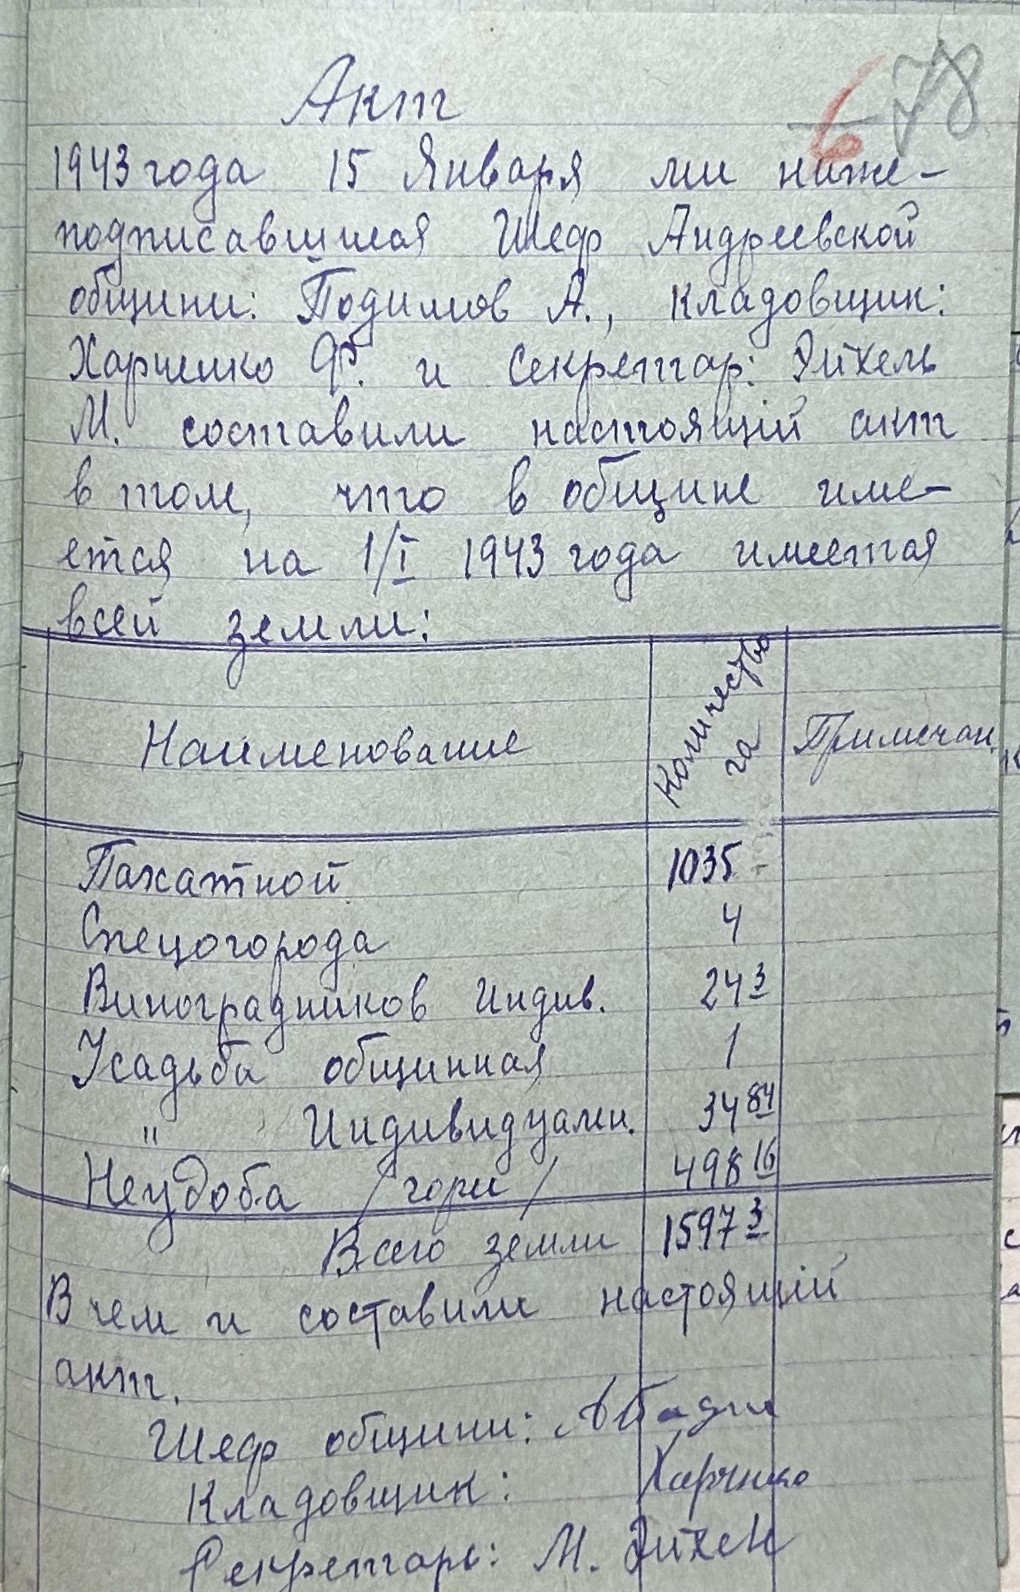 678
Акт
1943 года 15 Января ми ниже-
подписавшиеся Шеф Андреевской
общини: Подимов А., кладовщик:
Харченко Ф. и Секретар: Эйхель
М. составили настоящій акт
в том, что в общине име-
ется на 1/I 1943 года имеется
всей земли:
Наименование Количество га Примечан.
Пахатной 1035 -
Спецогорода 4
Виноградников Индив. 24 3
Усадьба общинная 1
" Индивидуалн. 34 84
Неудоба /гори/ 498 16
Всего земли 1597 3
В чем и составили настоящій
акт.
Шеф общини:
Кладовщик: Харченко
Секретарь: М. Эйхель